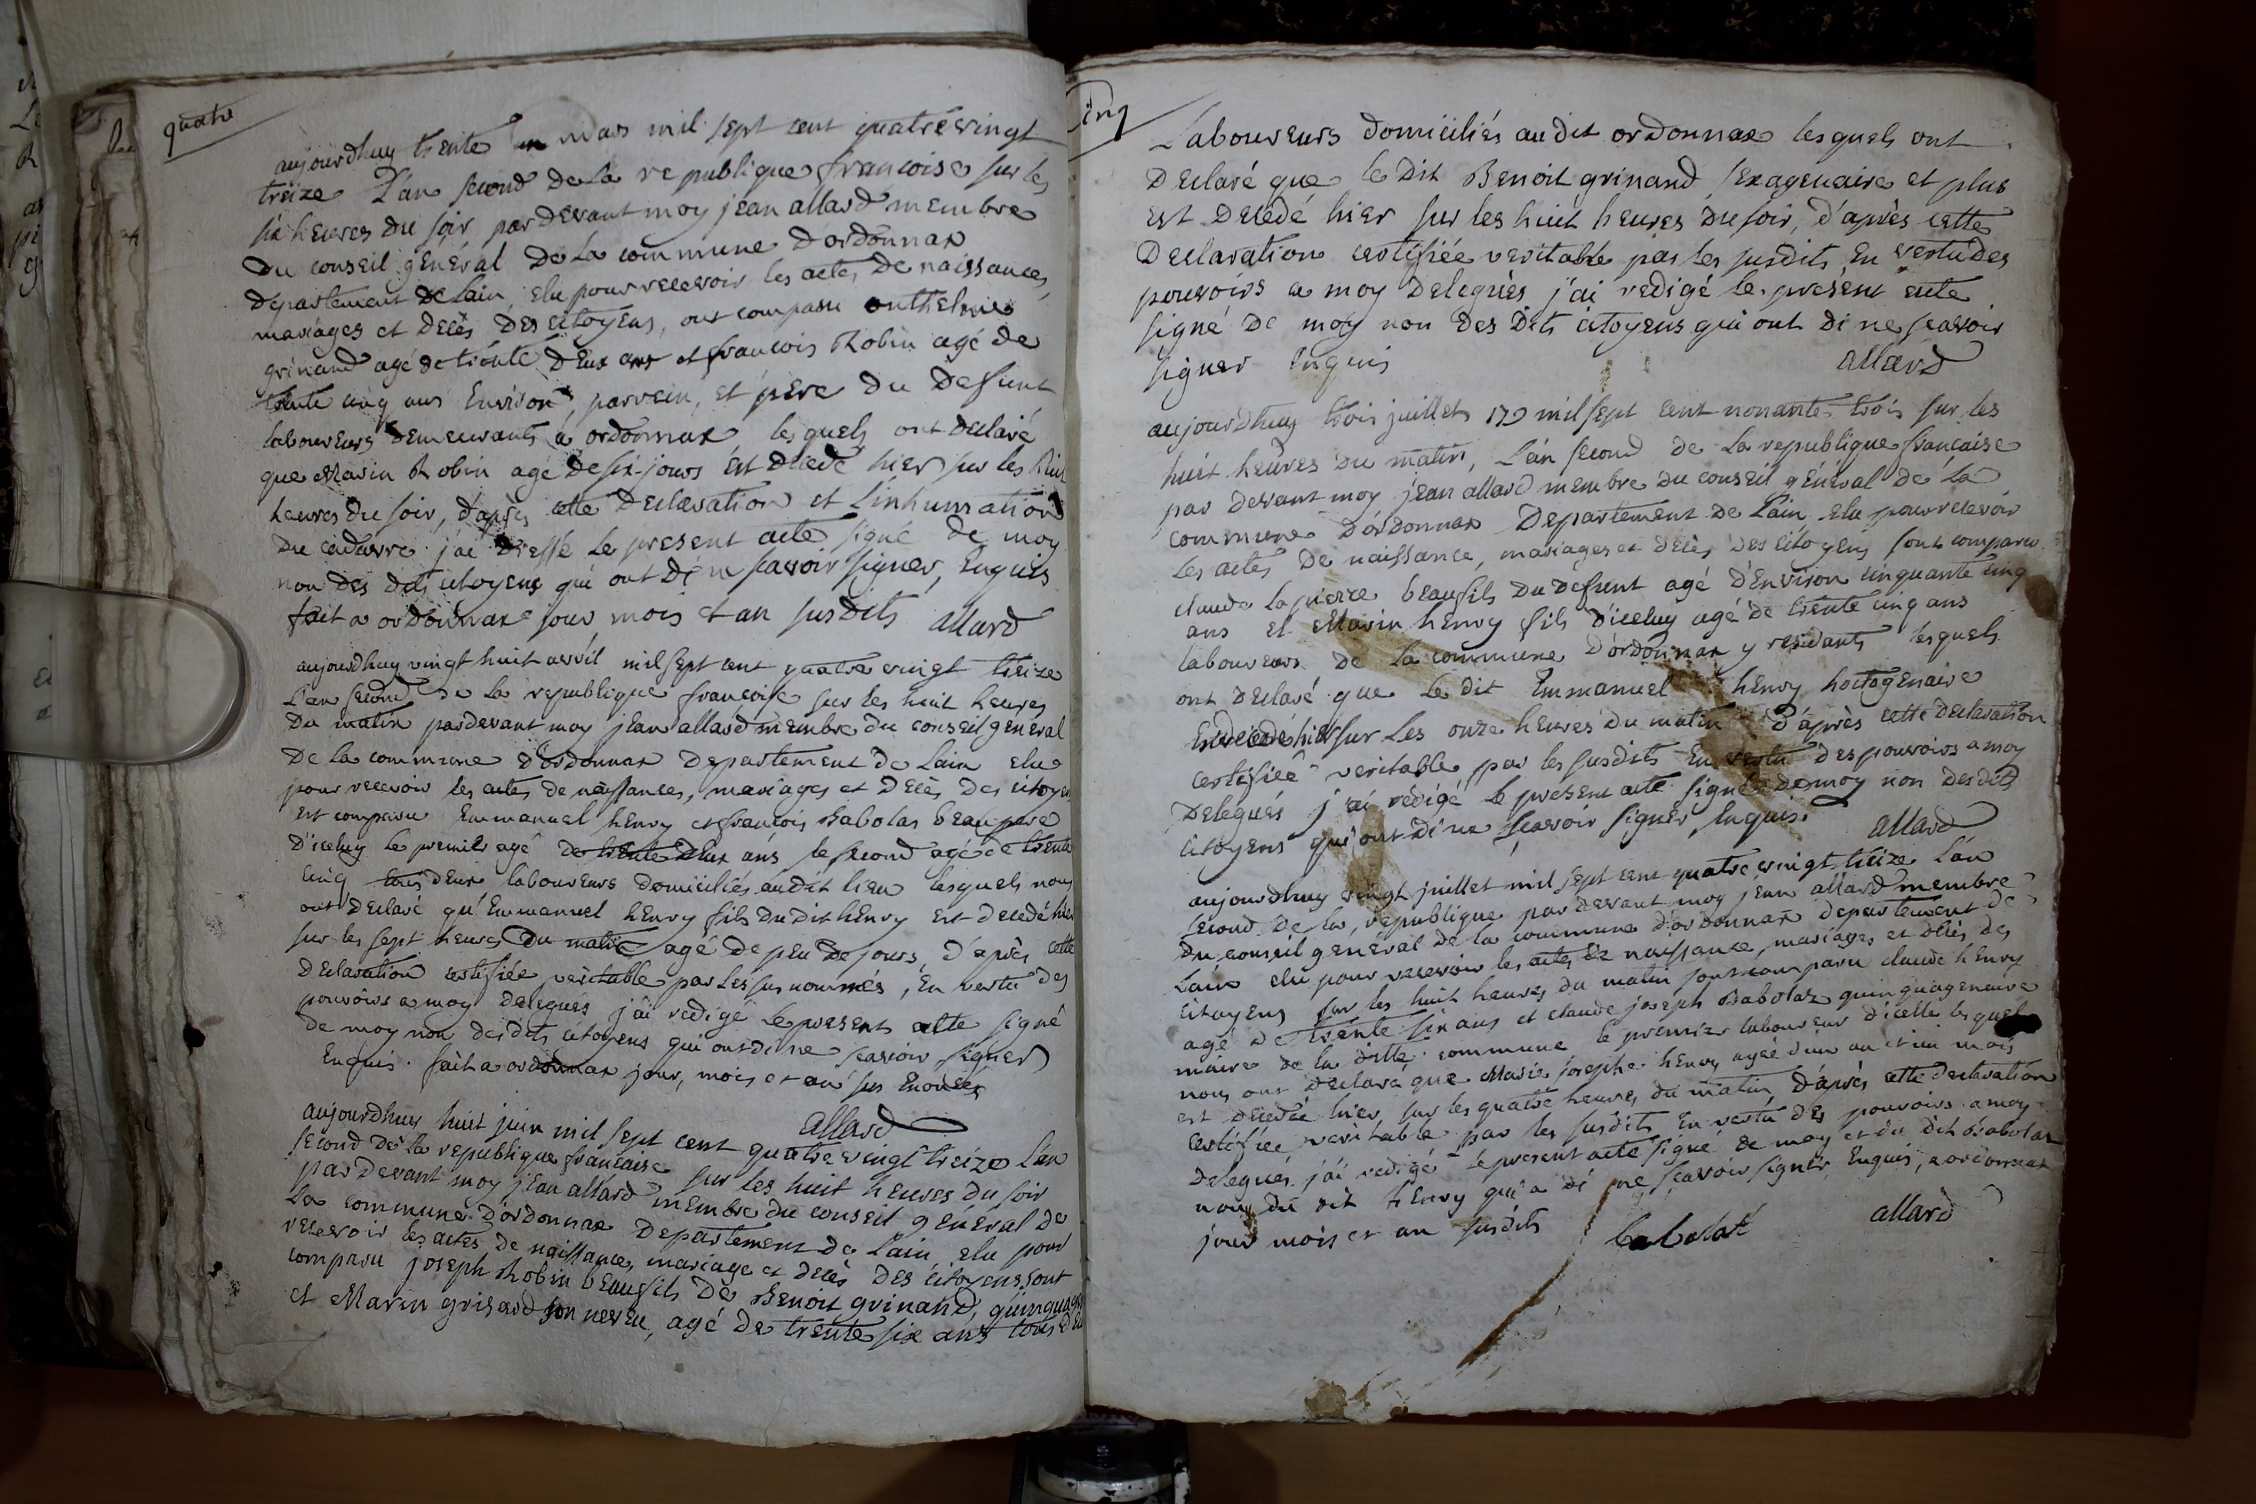 quatre
aujourdhuy trente un mars mil sept cent quatre vingt
treize L'an second de La republique francoise sur les
six heures du soir par devant moy jean allard membre
Du conseil général De La commune Dordonnax
Departement de Lain, elu pour recevoir les actes De naissances,
mariages et decès Des citoyens, ont comparu anthelme
grinand agé de trente Deux ans et francois Robin agé de
trente cinq ans Environ, parrein, et père Du Defunt
laboureurs Demeurants a ordonnax lesquels ont declaré
que Marin Robin agé De six jours est decedé hier sur les huit
heures du soir, d'après cette Declaration et L'inhumation
Du cadavre j'ai Dressé Le present acte signé de moy
non des dits citoyens qui ont Di ne scavoir signer, Enquis
fait a ordonnax jour mois et an susdits allard
aujourdhuy vingt huit avril mil sept cent quatre vingt treize
L'an second De La republique francoise sur les huit heures
Du matin pardevant moy jean allard membre du conseil général
De la commune D'ordonnax Departement de Lain elu
pour recevoir les actes de naissances, mariages et Decès Des citoyens
Est comparu Emmanuel henry et francois Babolas beau pere
D'iceluy le premier agé de trente deux ans le second agé de trente
cinq tous deux laboureurs domiciliés audit lieu lesquels nous
ont Declaré qu'Emmanuel henry fils Dudit henry est decedé hier
sur les sept heures Du matin agé De peu De jours, D'après cette
Declaration certifiée veritable par Les sus nommés, En vertu des
pouvoirs a moy Delegués j'ai redigé Le present acte signé
De moy non desdits citoyens qui ont di ne scavoir signer
Enquis. fait a ordonnax jour, mois et an sus Enoncés
allard
aujourdhuy huit juin mil sept cent quatre vingt treize L'an
second De La republique francaise sur les huit heures du soir
par devant moy jean allard membre du conseil général de
La commune D'ordonnax Departement de Lain elu pour
recevoir les actes de naissance, mariage et decès Des citoyens sont
comparu joseph Robin beaufils De Benoit grinand, quinquag
et Marin grisard son neveu, agé de trente six ans tous deux
cinq
Laboureurs domiciliés audit ordonnax lesquels ont
Declaré que le Dit Benoit grinand sexagenaire et plus
est Decedé hier sur les huit heures du soir, d'après cette
Declaration certifiée veritable par les susdits En vertu des
pouvoirs a moy Delegués j'ai redigé le présent acte
signé De moy non Des Dits citoyens qui ont di ne scavoir
signer Enquis allard
aujourdhuy trois juillet 179 mil sept cent nonante trois sur les
huit heures du matin, L'an second de La republique francaise
par devant moy jean allard membre du conseil général de la
commune D'ordonnax Departement De Lain elu pour recevoir
Les actes De naissance, mariages et decès Des citoyens sont comparu
claude Lapierre beaufils Du Defunt agé d'Environ cinquante cinq
ans et Marin henry fils D'iceluy agé de trente cinq ans
laboureurs De La commune D'ordonnax y residants lesquels
ont Declaré que Le dit Emmanuel henry hoctogenaire
Est decedé hier sur Les onze heures du matin D'après cette Declaration
certifiée veritable par les susdits En vertu des pouvoirs a moy
Delegués j'ai redigé Le present acte signé de moy non desdits
citoyens qui ont di ne scavoir signer, Enquis. allard
aujourdhuy vingt juillet mil sept cent quatre vingt treize L'an
second De La republique pardevant moy jean allard membre
Du conseil général de la commune D'ordonnax departement de
Lain elu pour recevoir les actes de naissance, mariages et decès des
citoyens sur les huit heures du matin sont comparu claude henry
agé de trente six ans et claude joseph Babolat quinquagenaire
maire de la ditte commune le premier laboureur d'icelle lesquels
nous ont Declaré que Marie josephe henry agée d'un an et un mois
est decedée hier, sur les quatre heures du matin, D'après cette declaration
certifiée veritable par les susdits En vertu des pouvoirs a moy
delegués j'ai redigé le present acte signé de moy et du dit Babolat
non du dit henry qui a di ne scavoir signer Enquis, a ordonnax
jour mois et an susdits babolat allard